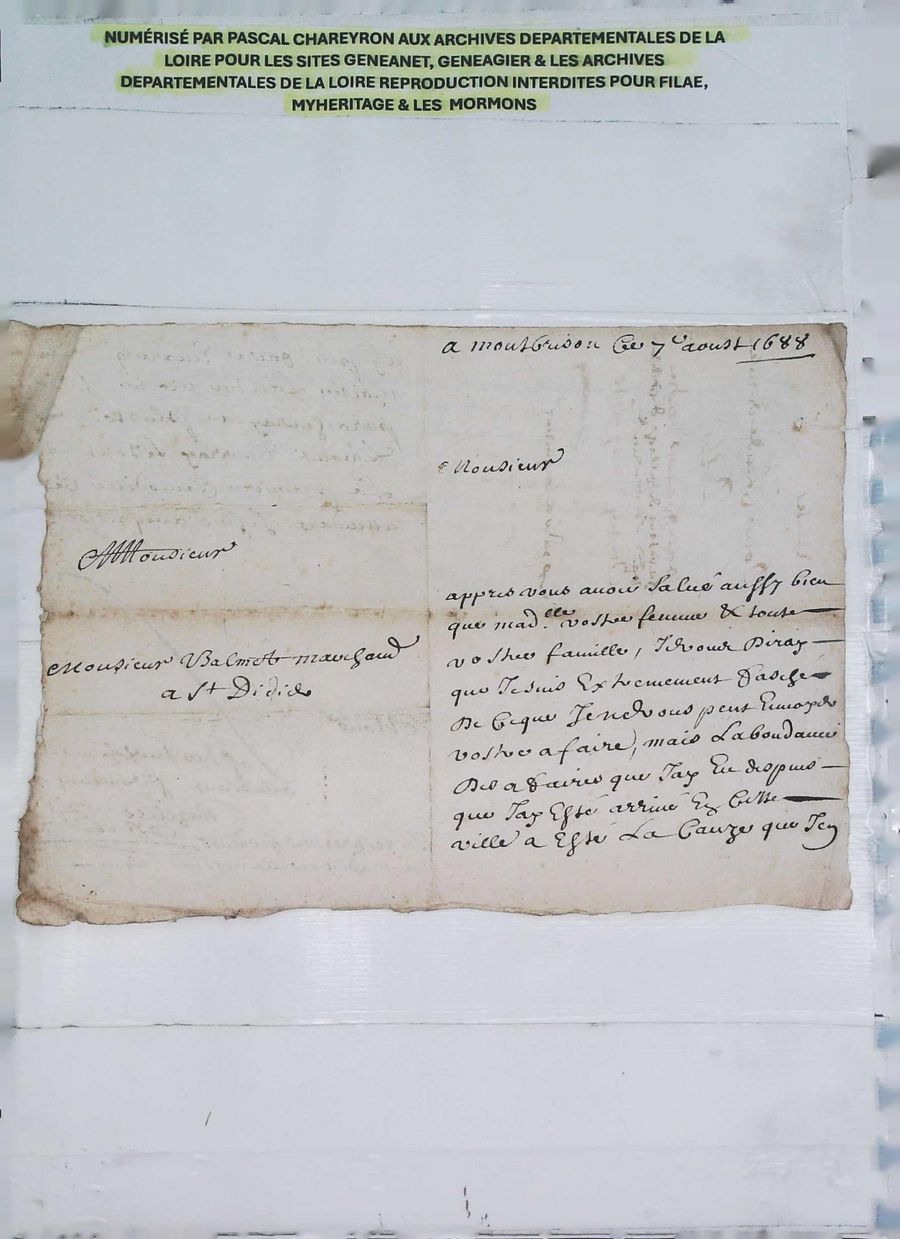 NUMÉRISÉ PAR PASCAL CHAREYRON AUX ARCHIVES DEPARTEMENTALES DE LA
LOIRE POUR LES SITES GENEANET, GENEAGIER & LES ARCHIVES
DEPARTEMENTALES DE LA LOIRE REPRODUCTION INTERDITES POUR FILAE,
MYHERITAGE & LES MORMONS
Monsieur
Monsieur marchand
a St Didie
a montbrison Ce 7e aoust 1688
Monsieur
appres vous avoir Salué aussy bien
que madlle vostre femme & toute
vostre famille, Je vous Diray
que Je suis Extremement fasché
De Ceque vous peut
vostre afaire, mais Labondance
Des afaires que Jay Eu despuis
que Jay Esté arrivé En Cette
ville a Esté La Cauze que Jen